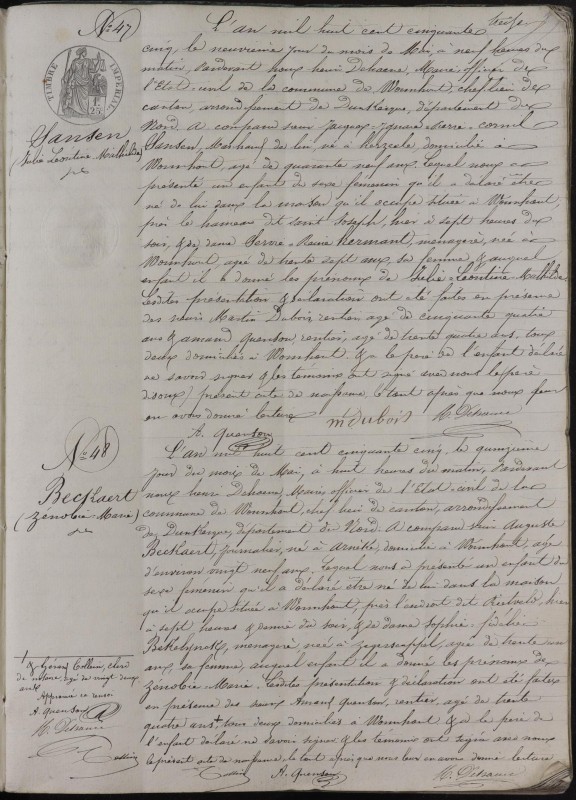 treize
N° 47
TIMBRE IMPERIAL
1F 25
Sansen
(Julie Léontine Mathilde)
L'an mil huit cent cinquante
cinq, le neuvième jour du mois de Mai, à neuf heures du
matin, Pardevant nous henri Dehaene, Maire officier de
l'Etat-civil de la commune de Wormhout, chef lieu de
canton, arrondissement de Dunkerque, département du
Nord A comparu sieur Jacques-Ignace-Pierre-Corneil
Sansen, Marchand de lin né à herzeele domicilié à
Wormhout, agé de quarante neuf ans. Lequel nous a
présenté un enfant du sexe féminin qu'il a déclaré être
né de lui dans la maison qu'il occupe située à Wormhout,
près le hameau dit Saint Joseph, hier à sept heures du
soir, & de dame Reine hermant, ménagère, née à
Wormhout, agée de trente sept ans, sa femme, & auquel
enfant il a donné les prénoms de Julie-Léontine-Mathilde
Lesdites présentation & déclaration ont été faites en présence
des sieurs Martin Dubois rentier agé de cinquante quatre
ans & amand Quenson, rentier, agé de trente quatre ans, tous
deux domiciliés à Wormhout & a le père de l'enfant déclaré
ne savoir signer & les témoins ont signé avec nous le présent
acte de naissance, le tout après que nous leur
en avons donné lecture
m Dubois
h. Dehaene
A. Quenson
N° 48
Beckaert
(Zénobie-Marie)
L'an mil huit cent cinquante cinq, le quinzième
jour du mois de Mai, à huit heures du matin, Pardevant
nous henri Dehaene, Maire officier de l'Etat-civil de la
commune de Wormhout, chef lieu de canton, arrondissement
de Dunkerque, département du Nord. A comparu sieur Auguste
Beckaert, journalier, né à Arnèke, domicilié à Wormhout, agé
d'environ vingt neuf ans. Lequel nous a présenté un enfant du
sexe féminin qu'il a déclaré être né de lui dans la maison
qu'il occupe située à Wormhout, près l'endroit dit hier
à sept heures & demie du soir, & de dame Sophie-fidélie
ménagère, née à Zegerscappel, agée de trente un
ans, sa femme, auquel enfant il a donné les prénoms de
Zénobie-Marie. Lesdites présentation & déclaration ont été faites
en présence des sieurs Amand Quenson, rentier, agé de trente
quatre ans, tous deux domiciliés à Wormhout & a le père de
l'enfant déclaré ne savoir signer & les témoins ont signé avec nous
le présent acte de naissance, le tout après que nous leur en avons donné lecture
Collin
A. Quenson
h. Dehaene
& Gérard Collin, clerc
de notaire, agé de vingt deux
ans
Approuvé ce renvoi
A. Quenson
h. Dehaene
Collin